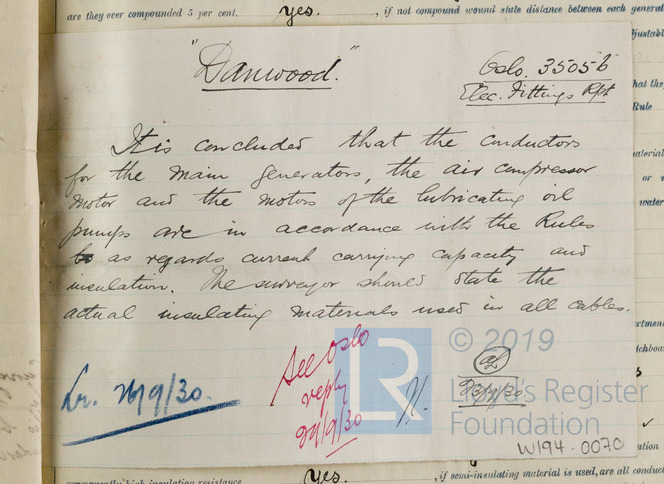 are they over compounded 5 per cent. yes. , if not compound wound state distance between each general
"Danwood."
Oslo. 35056
Elec. Fittings Rpt
It is concluded that the conductors
for the main generators, the air compressor
motor and the motors of the lubricating oil
pumps are in accordance with the Rules
as regards current carrying capacity and
insulation. The surveyor should state the
actual insulating materials used in all cables.
Lr. 26/9/30.
See Oslo
reply
29/9/30
LR
© 2019
Lloyd's Register
Foundation
W194-0070
permanently high insulation resistance yes. , if semi-insulating material is used, are all conduct